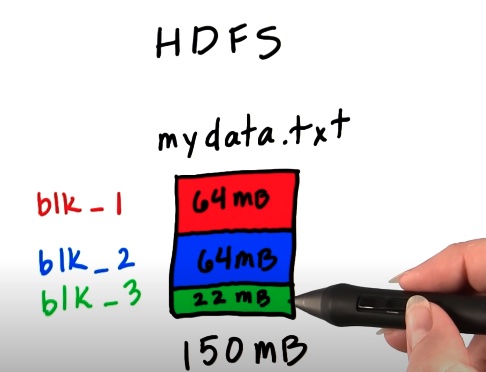 HDFS
mydata.txt
blk_1 64mB
blk_2 64mB
blk_3 22mB
150mB